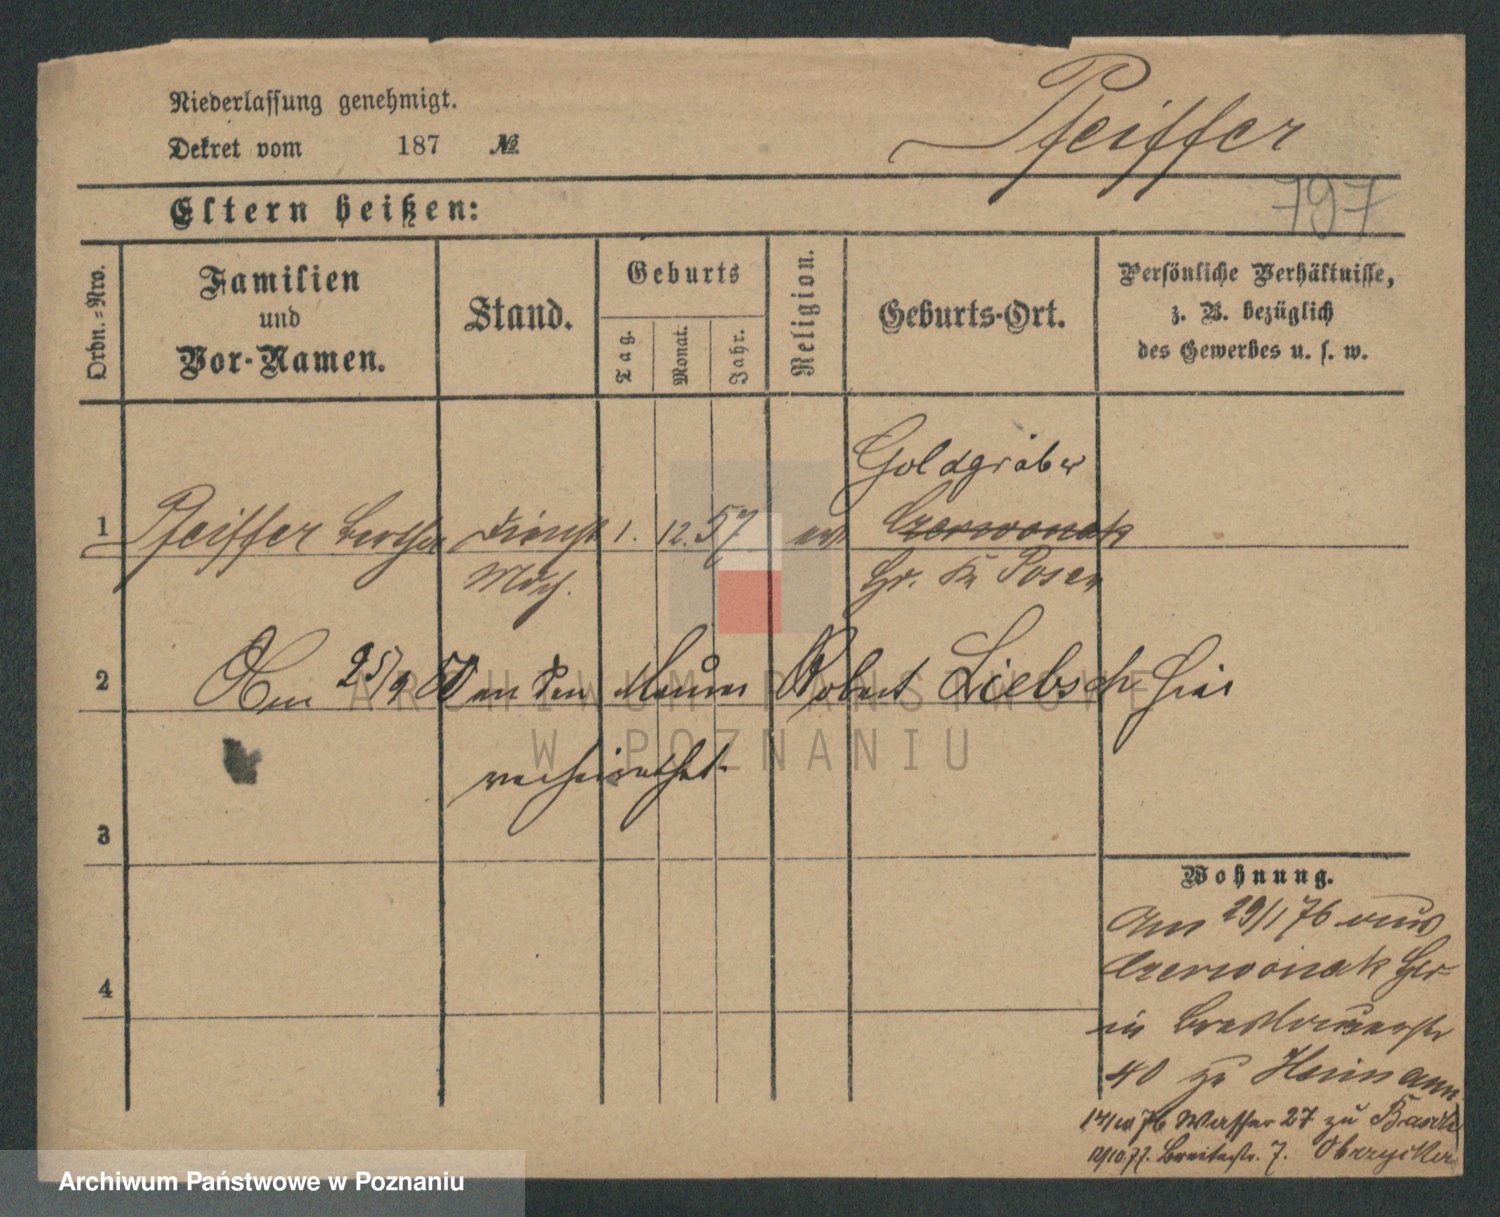 Niederlassung genehmigt.
Dekret vom 187 №
Pfeiffer
797
Eltern heißen:
Ordn.-Nro.
Familien
und
Vor-Namen.
Stand.
Geburts
Tag.
Monat.
Jahr.
Religion.
Geburts-Ort.
Persönliche Verhältnisse,
z. B. bezüglich
des Gewerbes u. s. w.
Goldgräber
1 Pfeiffer Bertha Dienst 1. 12. 57 ev Czerwonak
Mdch. Gr. Kr Posen
2 Am 25/9 80 an den Maurer Robert Liebsch hier
verheirathet.
3
4
Wohnung.
Am 29/1 76 aus
Czerwonak
in Breslauerstr
40 zu Heimann
76 Wasser 27 zu
12/10.77. Breitestr. 7. Obrzycker
ARCHIWUM PAŃSTWOWE
W POZNANIU
Archiwum Państwowe w Poznaniu